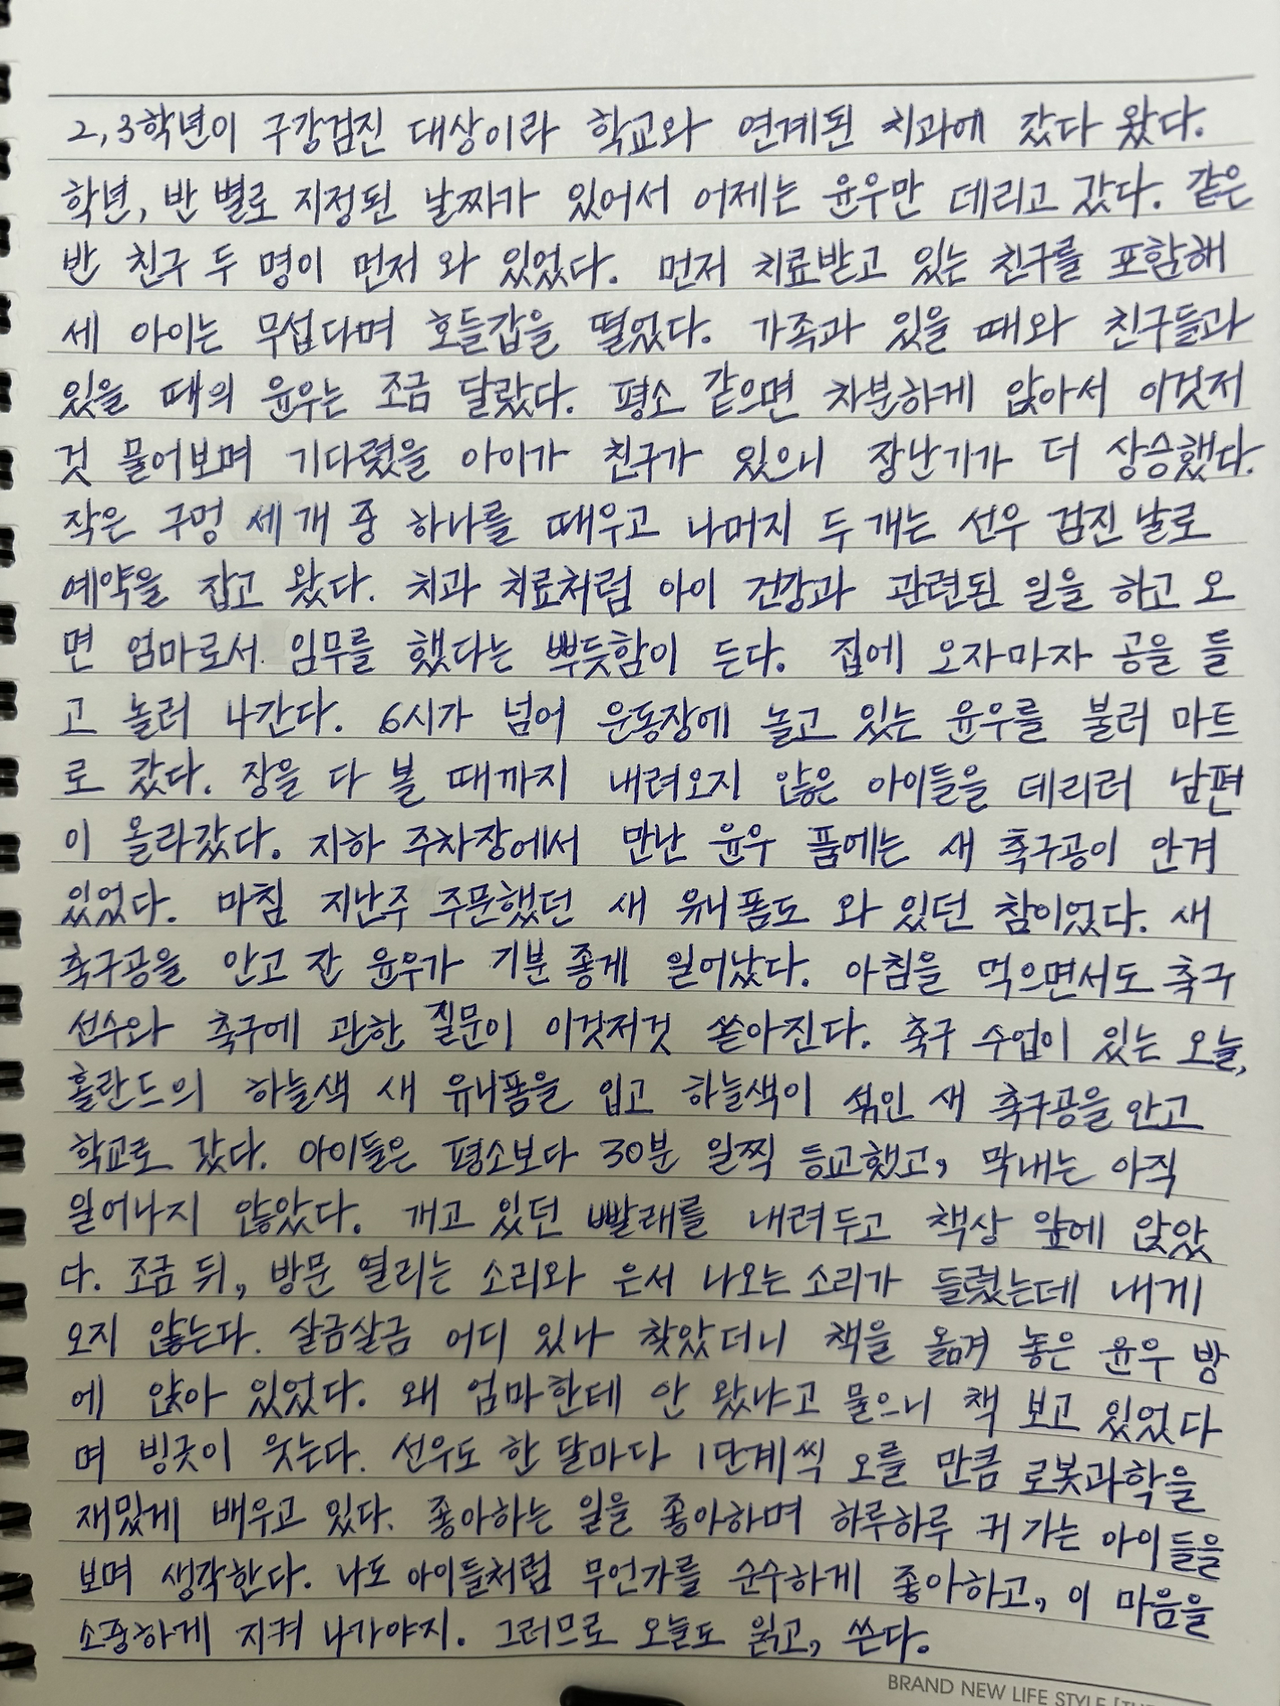 2,3학년이 구강검진 대상이라 학교와 연계된 치과에 갔다 왔다.
학년, 반 별로 지정된 날짜가 있어서 어제는 윤우만 데리고 갔다. 같은
반 친구 두 명이 먼저 와 있었다. 먼저 치료받고 있는 친구를 포함해
세 아이는 무섭다며 호들갑을 떨었다. 가족과 있을 때와 친구들과
있을 때의 윤우는 조금 달랐다. 평소 같으면 차분하게 앉아서 이것저
것 물어보며 기다렸을 아이가 친구가 있으니 장난기가 더 상승했다.
작은 구멍 세 개 중 하나를 때우고 나머지 두 개는 선우 검진 날로
예약을 잡고 왔다. 치과 치료처럼 아이 건강과 관련된 일을 하고 오
면 엄마로서 임무를 했다는 뿌듯함이 든다. 집에 오자마자 공을 들
고 놀러 나간다. 6시가 넘어 운동장에 놀고 있는 윤우를 불러 마트
로 갔다. 장을 다 볼 때까지 내려오지 않은 아이들을 데리러 남편
이 올라갔다. 지하 주차장에서 만난 윤우 품에는 새 축구공이 안겨
있었다. 마침 지난주 주문했던 새 유니폼도 와 있던 참이었다. 새
축구공을 안고 잔 윤우가 기분 좋게 일어났다. 아침을 먹으면서도 축구
선수와 축구에 관한 질문이 이것저것 쏟아진다. 축구 수업이 있는 오늘,
홀란드의 하늘색 새 유니폼을 입고 하늘색이 섞인 새 축구공을 안고
학교로 갔다. 아이들은 평소보다 30분 일찍 등교했고, 막내는 아직
일어나지 않았다. 개고 있던 빨래를 내려두고 책상 앞에 앉았
다. 조금 뒤, 방문 열리는 소리와 은서 나오는 소리가 들렸는데 내게
오지 않는다. 살금살금 어디 있나 찾았더니 책을 옮겨 놓은 윤우 방
에 앉아 있었다. 왜 엄마한테 안 왔냐고 물으니 책 보고 있었다
며 빙긋이 웃는다. 선우도 한 달마다 1단계씩 오를 만큼 로봇과학을
재밌게 배우고 있다. 좋아하는 일을 좋아하며 하루하루 커 가는 아이들을
보며 생각한다. 나도 아이들처럼 무언가를 순수하게 좋아하고, 이 마음을
소중하게 지켜 나가야지. 그러므로 오늘도 읽고, 쓴다.
BRAND NEW LIFE STYLE